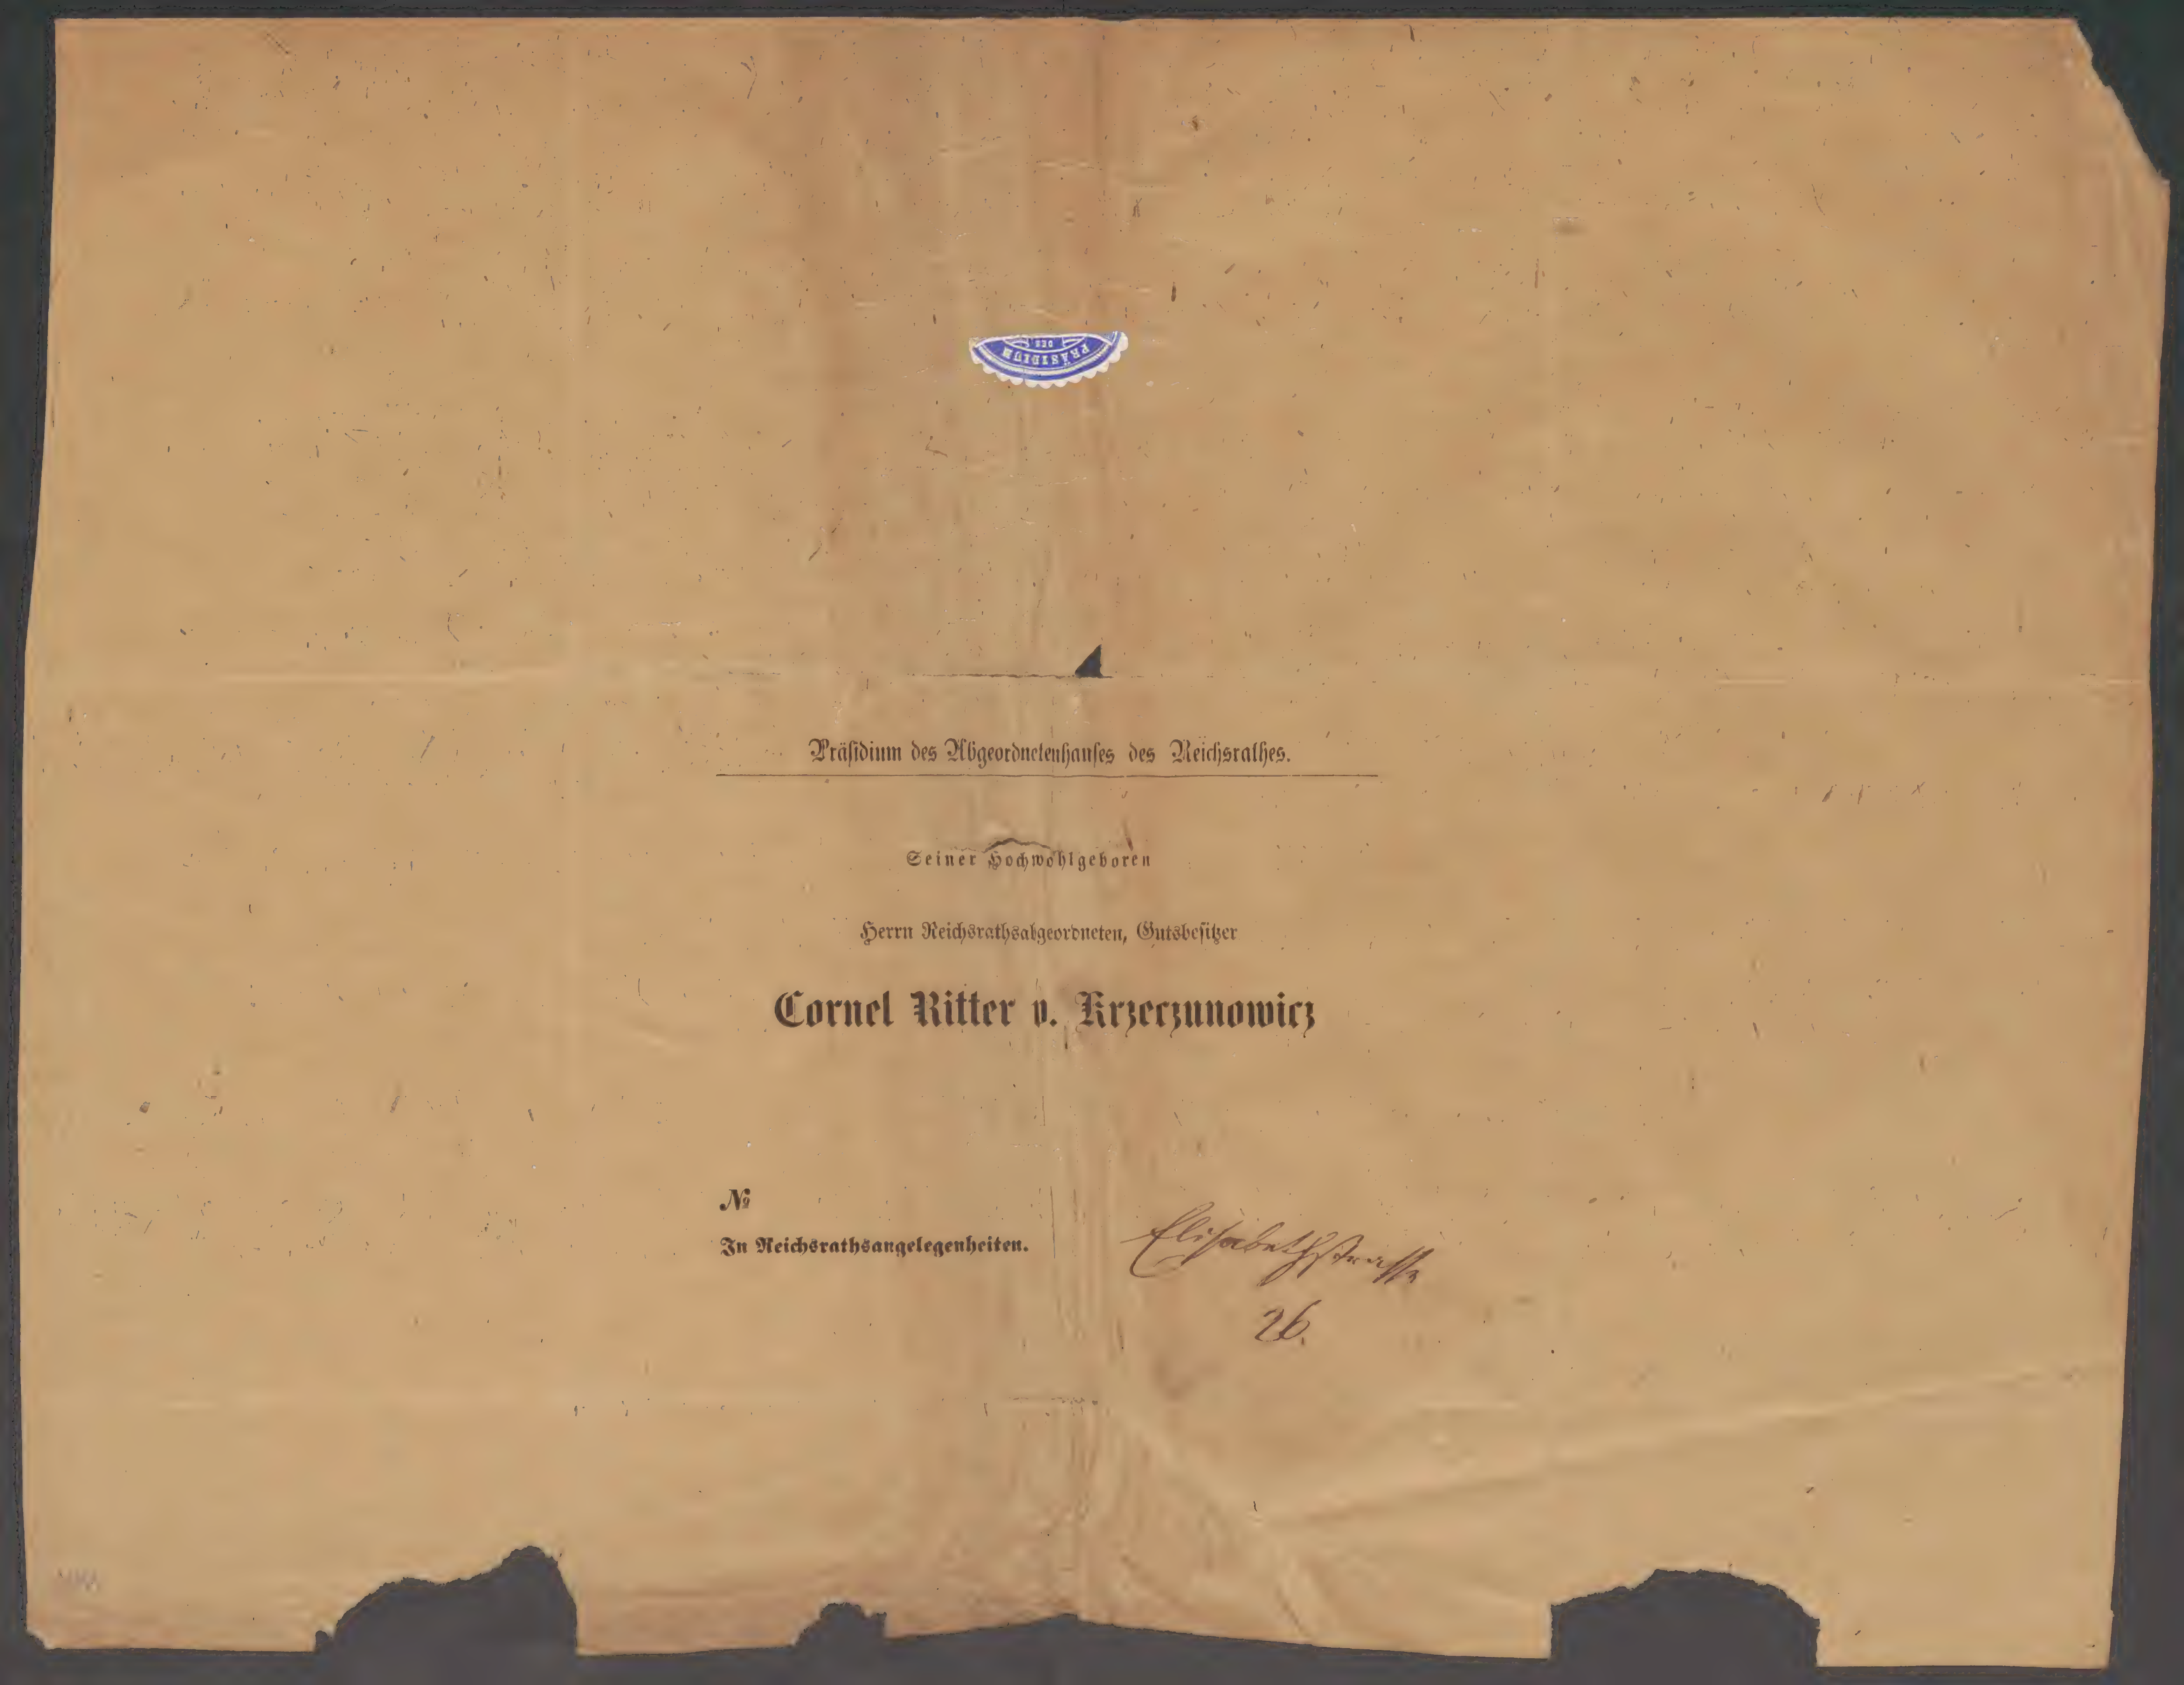 PRÄSIDIUM
DES
Präsidium des Abgeordnetenhauses des Reichsrathes.
Seiner Hochwohlgeboren
Herrn Reichsrathsabgeordneten, Gutsbesitzer
Cornel Ritter v. Krzeczunowicz
№
In Reichsrathsangelegenheiten.
Elisabethstrasse
26.